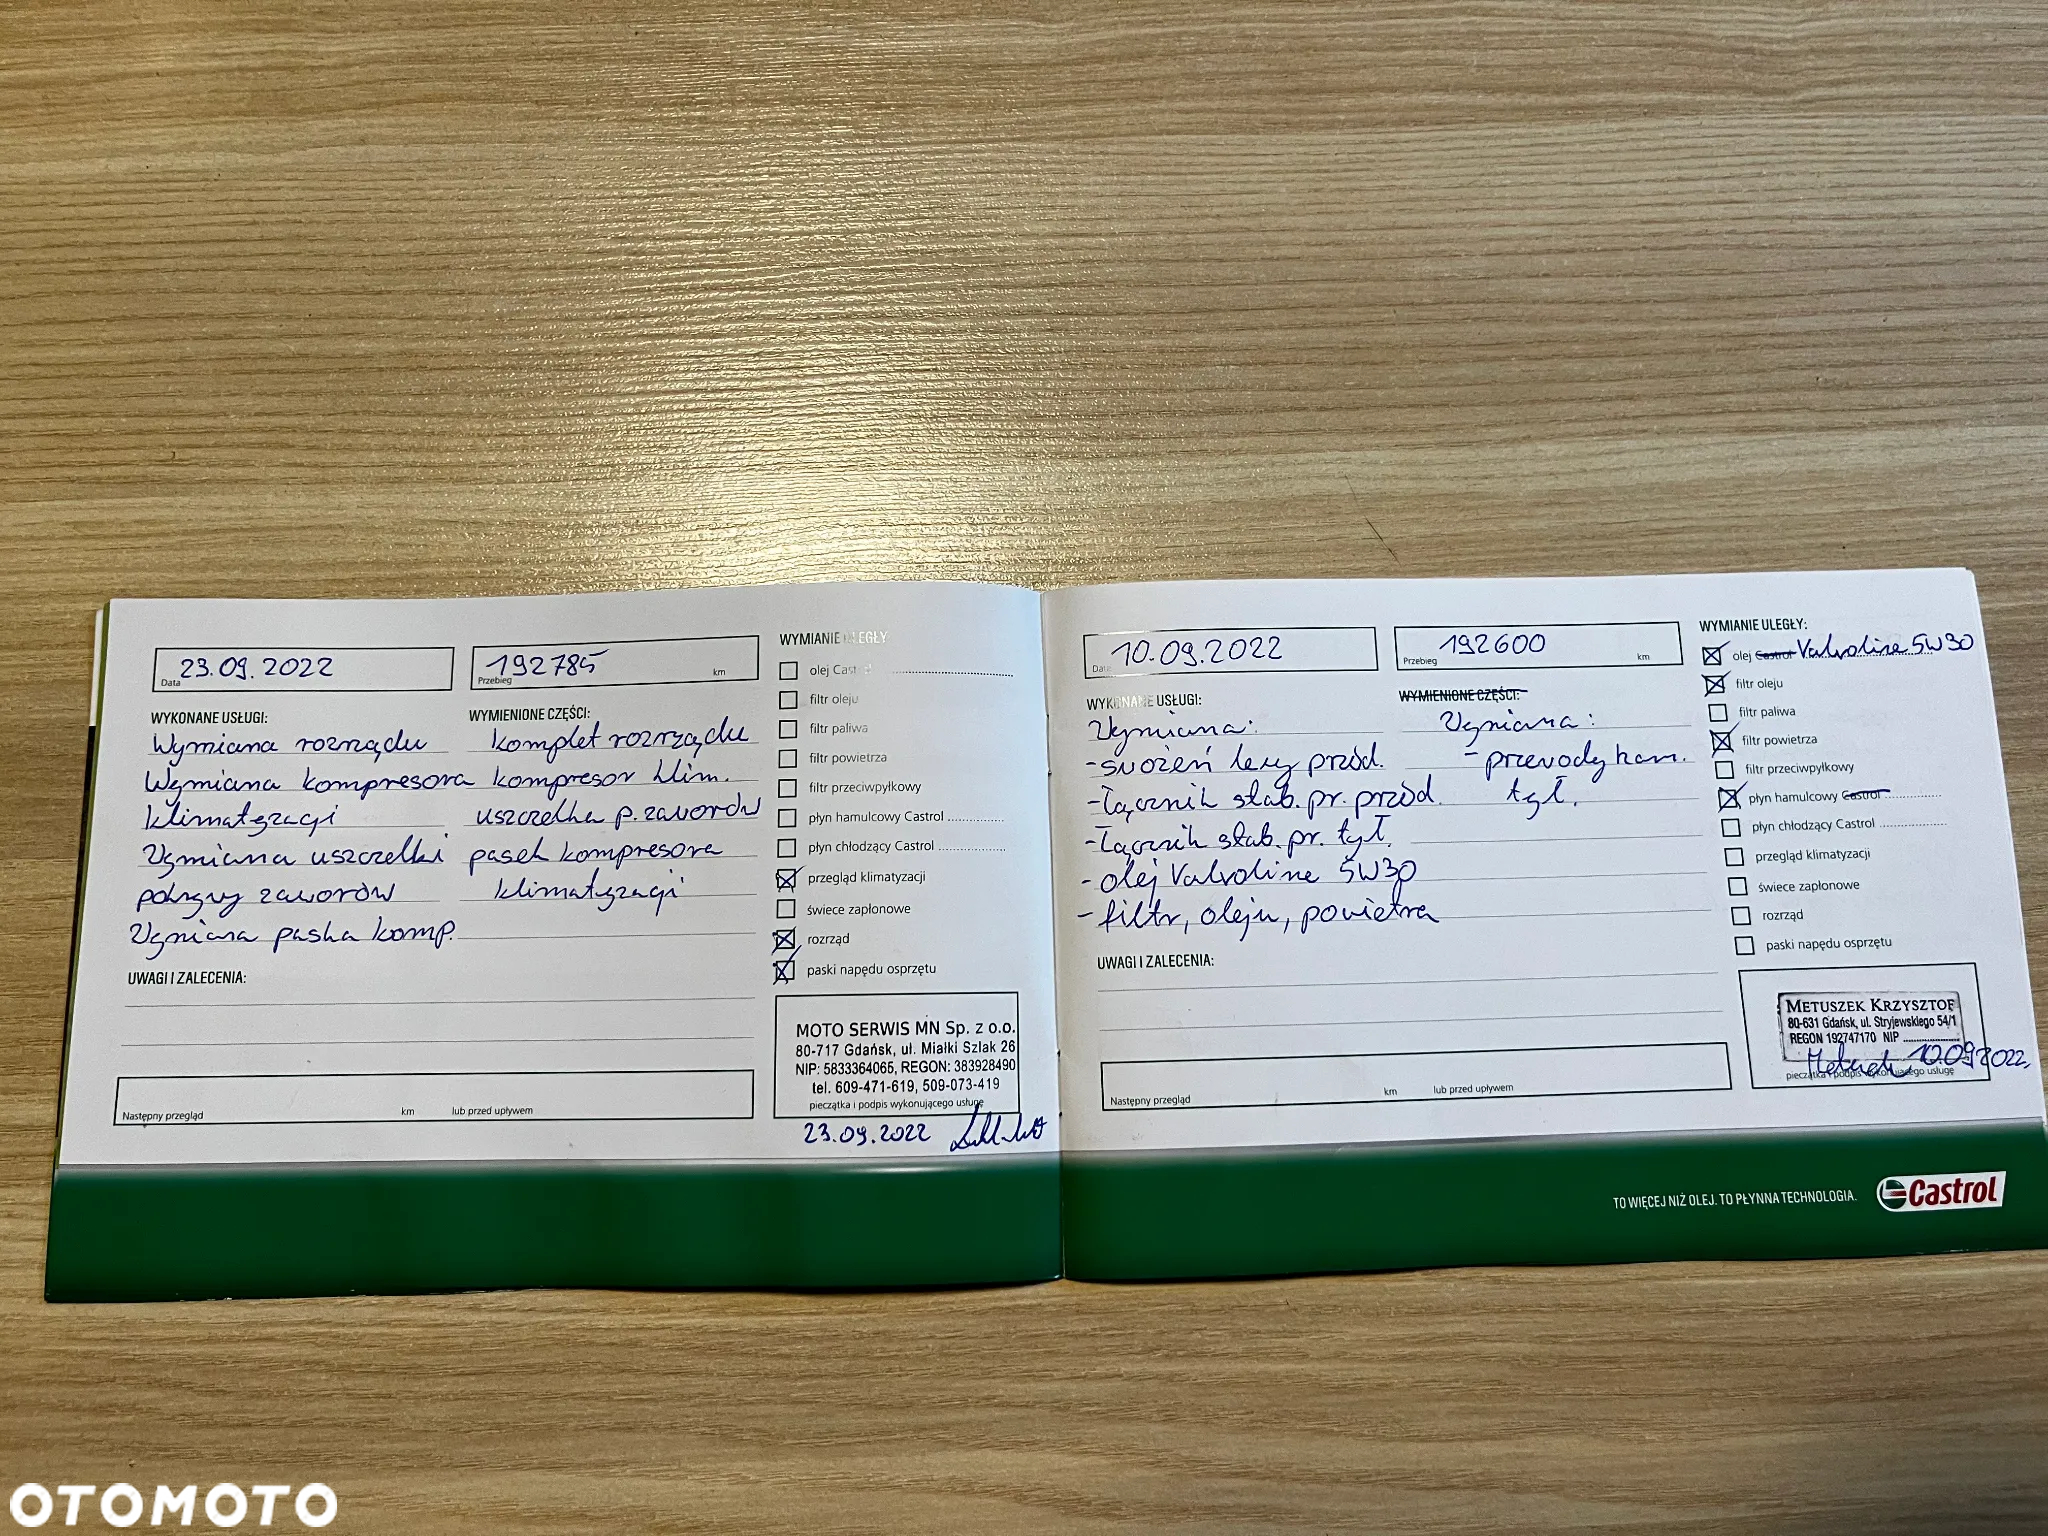 23.09.2022
Data
192785
Przebieg km
WYKONANE USŁUGI:
Wymiana rozrządu
Wymiana kompresora
klimatyzacji
Wymiana uszczelki
pokrywy zaworów
Wymiana paska komp.
WYMIENIONE CZĘŚCI:
komplet rozrządu
kompresor klim.
uszczelka p. zaworów
pasek kompresora
klimatyzacji
UWAGI I ZALECENIA:
Następny przegląd km lub przed upływem
WYMIANIE ULEGŁY:
olej Castrol
filtr oleju
filtr paliwa
filtr powietrza
filtr przeciwpyłkowy
płyn hamulcowy Castrol
płyn chłodzący Castrol
przegląd klimatyzacji
świece zapłonowe
rozrząd
paski napędu osprzętu
MOTO SERWIS MN Sp. z o.o.
80-717 Gdańsk, ul. Miałki Szlak 26
NIP: 5833364065, REGON: 383928490
tel. 609-471-619, 509-073-419
pieczątka i podpis wykonującego usługę
23.09.2022
10.09.2022
Data
192600
Przebieg km
WYKONANE USŁUGI:
Wymiana:
- sworzeń lewy przód.
- Łącznik stab. pr. przód.
- Łącznik stab. pr. tył.
- olej Valvoline 5W30
- filtr, oleju, powietrza
WYMIENIONE CZĘŚCI:
Wymiana:
- przewody ham.
tył.
UWAGI I ZALECENIA:
Następny przegląd km lub przed upływem
WYMIANIE ULEGŁY:
olej Castrol Valvoline 5W30
filtr oleju
filtr paliwa
filtr powietrza
filtr przeciwpyłkowy
płyn hamulcowy Castrol
płyn chłodzący Castrol
przegląd klimatyzacji
świece zapłonowe
rozrząd
paski napędu osprzętu
METUSZEK KRZYSZTOF
80-631 Gdańsk, ul. Stryjewskiego 54/1
REGON 192747170 NIP
10.09.2022.
pieczątka i podpis wykonującego usługę
TO WIĘCEJ NIŻ OLEJ. TO PŁYNNA TECHNOLOGIA.
Castrol
OTOMOTO